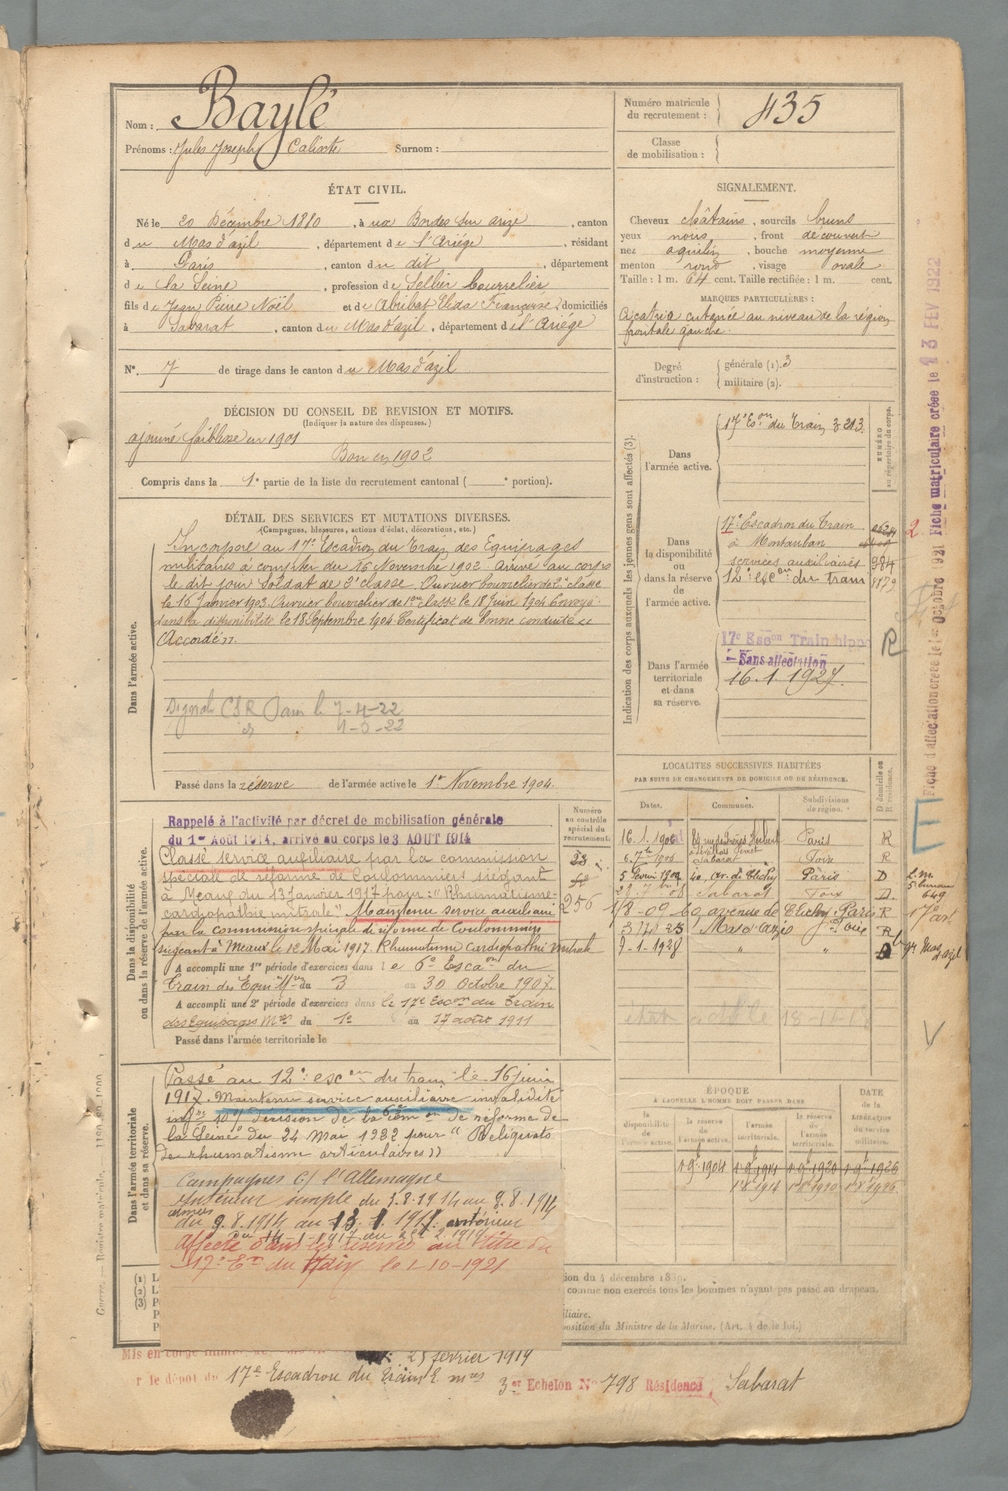 Nom : Baylé
Prénoms : Jules Joseph Calixte Surnom :
Numéro matricule du recrutement : 435
Classe de mobilisation :
ÉTAT CIVIL.
Né le 20 Décembre 1880, à aux Bordes sur arize, canton
du Mas d'azil, département de l'Ariège, résidant
à Paris, canton du dit, département
de la Seine, profession de Sellier bourrelier
fils de Jean Pierre Noël et de Abribat Elisa Françoise domiciliés
à Sabarat, canton du Mas d'azil, département de l'Ariège
N° 7 de tirage dans le canton du Mas d'azil
DÉCISION DU CONSEIL DE REVISION ET MOTIFS.
(Indiquer la nature des dispenses.)
ajourné faiblesse en 1901
Bon en 1902
Compris dans la 1e partie de la liste du recrutement cantonal ( e portion).
SIGNALEMENT.
Cheveux châtains, sourcils bruns
yeux noirs, front découvert
nez aquilin, bouche moyenne
menton rond, visage ovale
Taille : 1 m. 64 cent. Taille rectifiée : 1 m. cent.
MARQUES PARTICULIÈRES :
Cicatrice cutanée au niveau de la région
frontale gauche.
Degré d'instruction : générale (1). 3
militaire (2).
DÉTAIL DES SERVICES ET MUTATIONS DIVERSES.
(Campagnes, blessures, actions d'éclat, décorations, etc.)
Dans l'armée active.
Incorporé au 17e Escadron du Train des Equipages
militaires à compter du 16 Novembre 1902. Arrivé au corps
le dit jour Soldat de 2e classe. Ouvrier bourrelier de 2e classe
le 16 Janvier 1903. Ouvrier bourrelier de 1ère classe le 18 Juin 1904 Envoyé
dans la disponibilité le 18 Septembre 1904 Certificat de bonne conduite «
Accordé».
Paris le 7-4-22
Passé dans la réserve de l'armée active le 1er Novembre 1904.
Indication des corps auxquels les jeunes gens sont affectés (3).
NUMÉRO au répertoire du corps.
Dans l'armée active.
17e Eson du Train 3 213.
Dans la disponibilité ou dans la réserve de l'armée active.
17e Escadron du Train
à Montauban
services auxiliaires 984
12e escon du train
Dans l'armée territoriale et dans sa réserve.
17e Escon Train hippo
Sans affectation
16.1.1927.
R
Dans la disponibilité ou dans la réserve de l'armée active.
Numéro au contrôle spécial du recrutement.
Rappelé à l'activité par décret de mobilisation générale
du 1er Août 1914, arrivé au corps le 3 AOUT 1914
Classé service auxiliaire par la commission
spéciale de réforme de Coulommiers siégeant
à Meaux du 13 Janvier 1917 pour : "Rhumatisme-
cardiopathie mitrale" Maintenu service auxiliaire 256
par la commission spéciale de réforme de Coulommiers
siégeant à Meaux le 12 Mai 1917. Rhumatisme cardiopathie mitrale
A accompli une 1re période d'exercices dans le 6e Escaon du
Train des Equip. Mres du 3 au 30 Octobre 1907.
A accompli une 2e période d'exercices dans le 17e Escon du Train
des Equipages Mres du 1er au 17 août 1911
Passé dans l'armée territoriale le
LOCALITÉS SUCCESSIVES HABITÉES
PAR SUITE DE CHANGEMENTS DE DOMICILE OU DE RÉSIDENCE.
Dates. Communes. Subdivisions de région. D domicile ou R résidence.
Paris R
Sabarat Foix R
av. de Clichy Paris D
Sabarat Foix D.
1/8-09 60, avenue de Clichy Paris R
Mas d'azil Foix R
7-1-1928 " "
Dans l'armée territoriale et dans sa réserve.
Passé au 12e escon du train le 16 juin
1917. Maintenu service auxiliaire invalidité
de réforme de
la Seine du 24 Mai 1922 pour "Reliquats
de rhumatisme articulaires"
Campagnes c/ l'Allemagne
Intérieur simple du 3.8.1914 au 8.8.1914
armées du 9.8.1914 au 13.1.1917. intérieur
Affecté dans les réserves au titre du
17e Eon du Train le 1-10-1921
ÉPOQUE
À LAQUELLE L'HOMME DOIT PASSER DANS
la disponibilité de l'armée active. la réserve de l'armée active. l'armée territoriale. la réserve de l'armée territoriale.
DATE de la LIBÉRATION du service militaire.
ion du 4 décembre 1889.
comme non exercés tous les hommes n'ayant pas passé au drapeau.
iliaire.
position du Ministre de la Marine. (Art. 4 de la loi.)
Mis en congé
25 février 1919
r le dépôt du 17e Escadron du Train E. mres 3er Echelon N° 798 Résidence Sabarat
Fiche d'affectation créée le 1er Octobre 1921 Fiche matriculaire créée le 13 FEV 1922